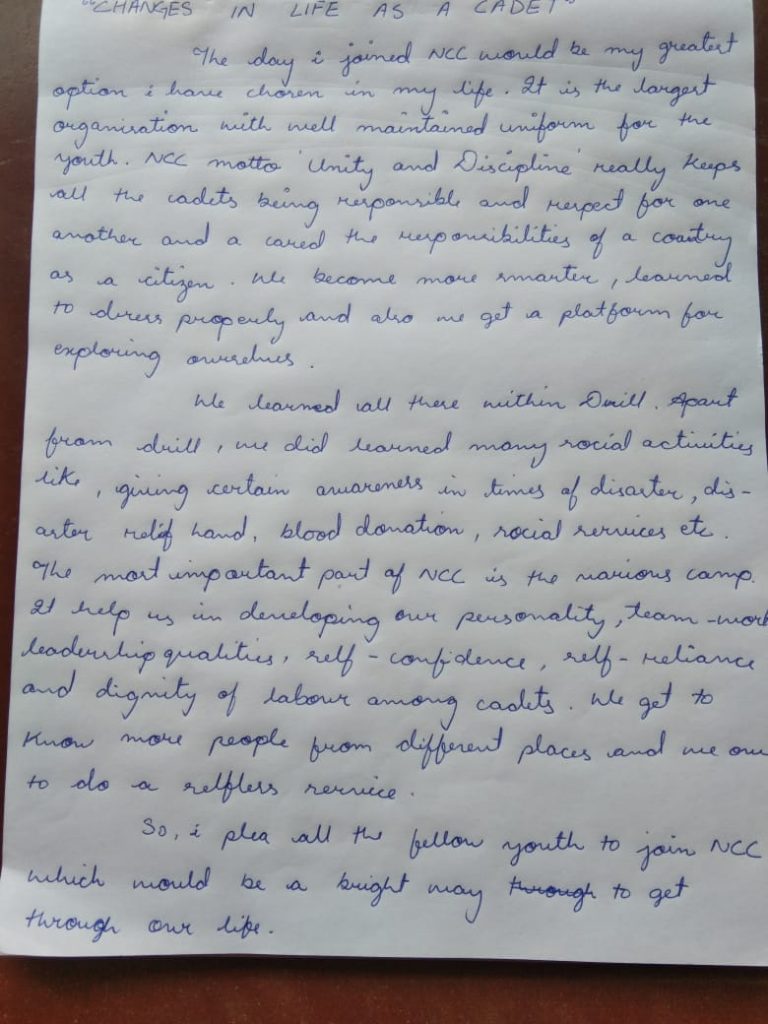 "CHANGES IN LIFE AS A CADET"
The day i joined NCC would be my greatest
option i have chosen in my life. It is the largest
organisation with well maintained uniform for the
youth. NCC motto 'Unity and Discipline' really keeps
all the cadets being responsible and respect for one
another and a cared the responsibilities of a country
as a citizen. We become more smarter, learned
to dress properly and also we get a platform for
exploring ourselves.
We learned all these within Drill. Apart
from drill, we did learned many social activities
like, giving certain awareness in times of disaster, dis-
aster relif hand, blood donation, social services etc.
The most important part of NCC is the various camp.
It help us in developing our personality, team-work
leadership qualities, self-confidence, self-reliance
and dignity of labour among cadets. We get to
know more people from different places and we
to do a selfless service.
So, i plea all the fellow youth to join NCC
which would be a bright way through to get
through our life.